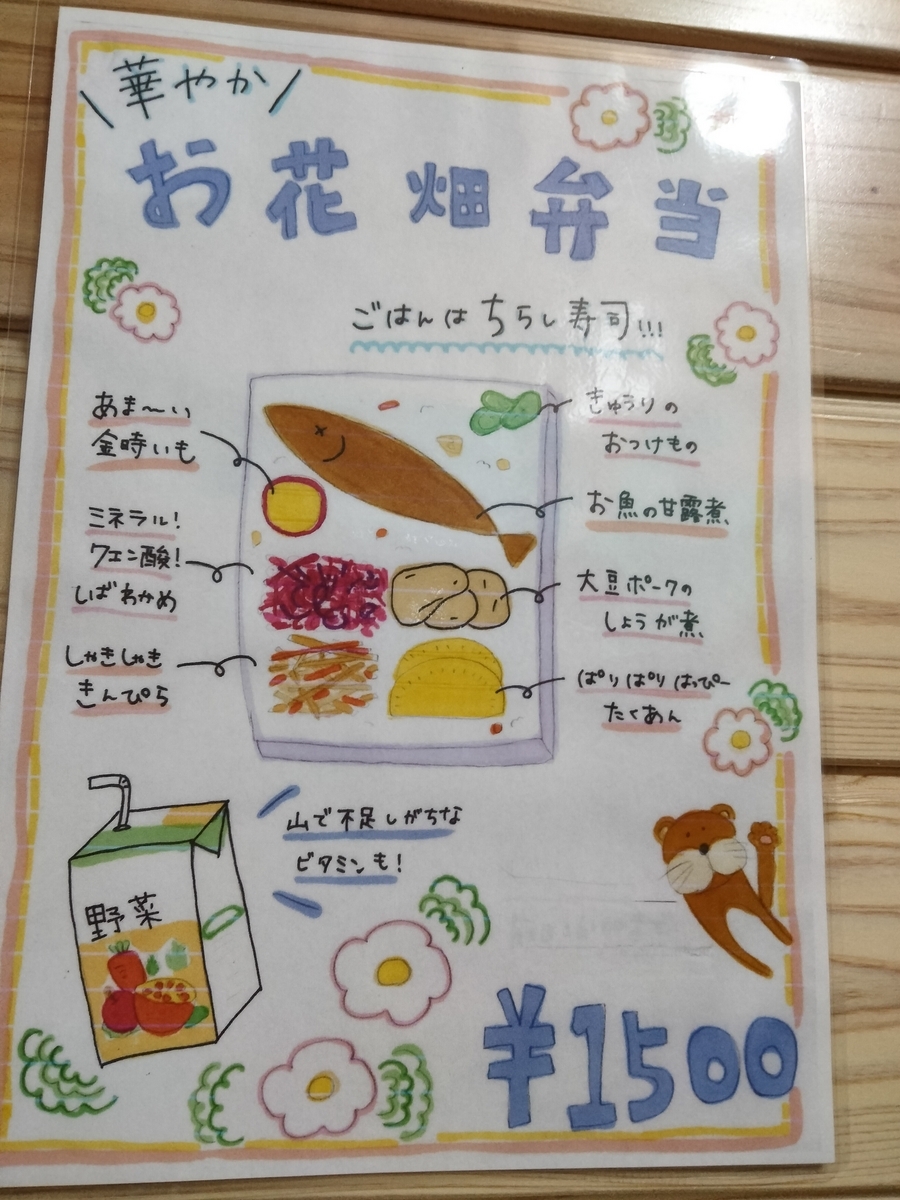 \華やか/
お花畑弁当
ごはんはちらし寿司!!!
あま〜い
金時いも
ミネラル!
クエン酸!
しばわかめ
しゃきしゃき
きんぴら
きゅうりの
おつけもの
お魚の甘露煮
大豆ポークの
しょうが煮
ぱりぱりはっぴー
たくあん
野菜
山で不足しがちな
ビタミンも!
¥1500